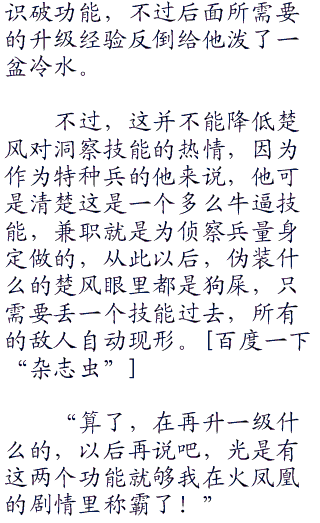 识破功能，不过后面所需要
的升级经验反倒给他泼了一
盆冷水。
不过，这并不能降低楚
风对洞察技能的热情，因为
作为特种兵的他来说，他可
是清楚这是一个多么牛逼技
能，兼职就是为侦察兵量身
定做的，从此以后，伪装什
么的楚风眼里都是狗屎，只
需要丢一个技能过去，所有
的敌人自动现形。[百度一下
“杂志虫”]
“算了，在再升一级什
么的，以后再说吧，光是有
这两个功能就够我在火凤凰
的剧情里称霸了！”